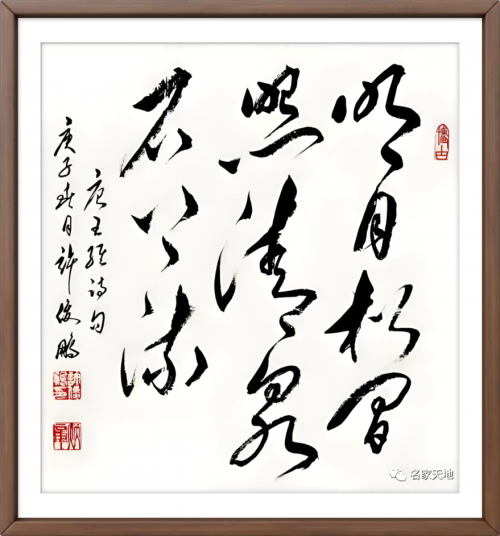 明月松间
照清泉
石上流
唐王维诗句
庚子日许俊鹏
名家天地